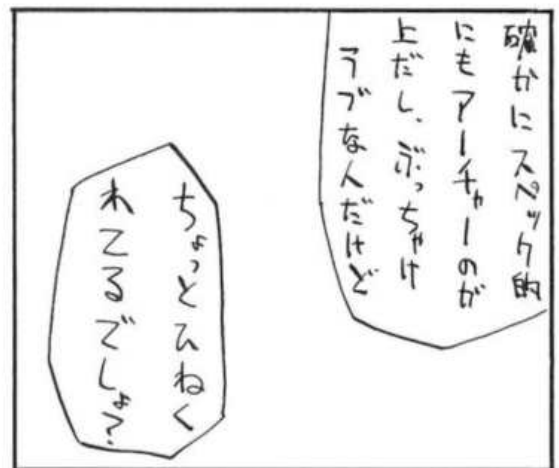 確かにスペック的
にもアーチャーのが
上だし、ぶっちゃけ
ラブな人だけど
ちょっとひねく
れてるでしょ?